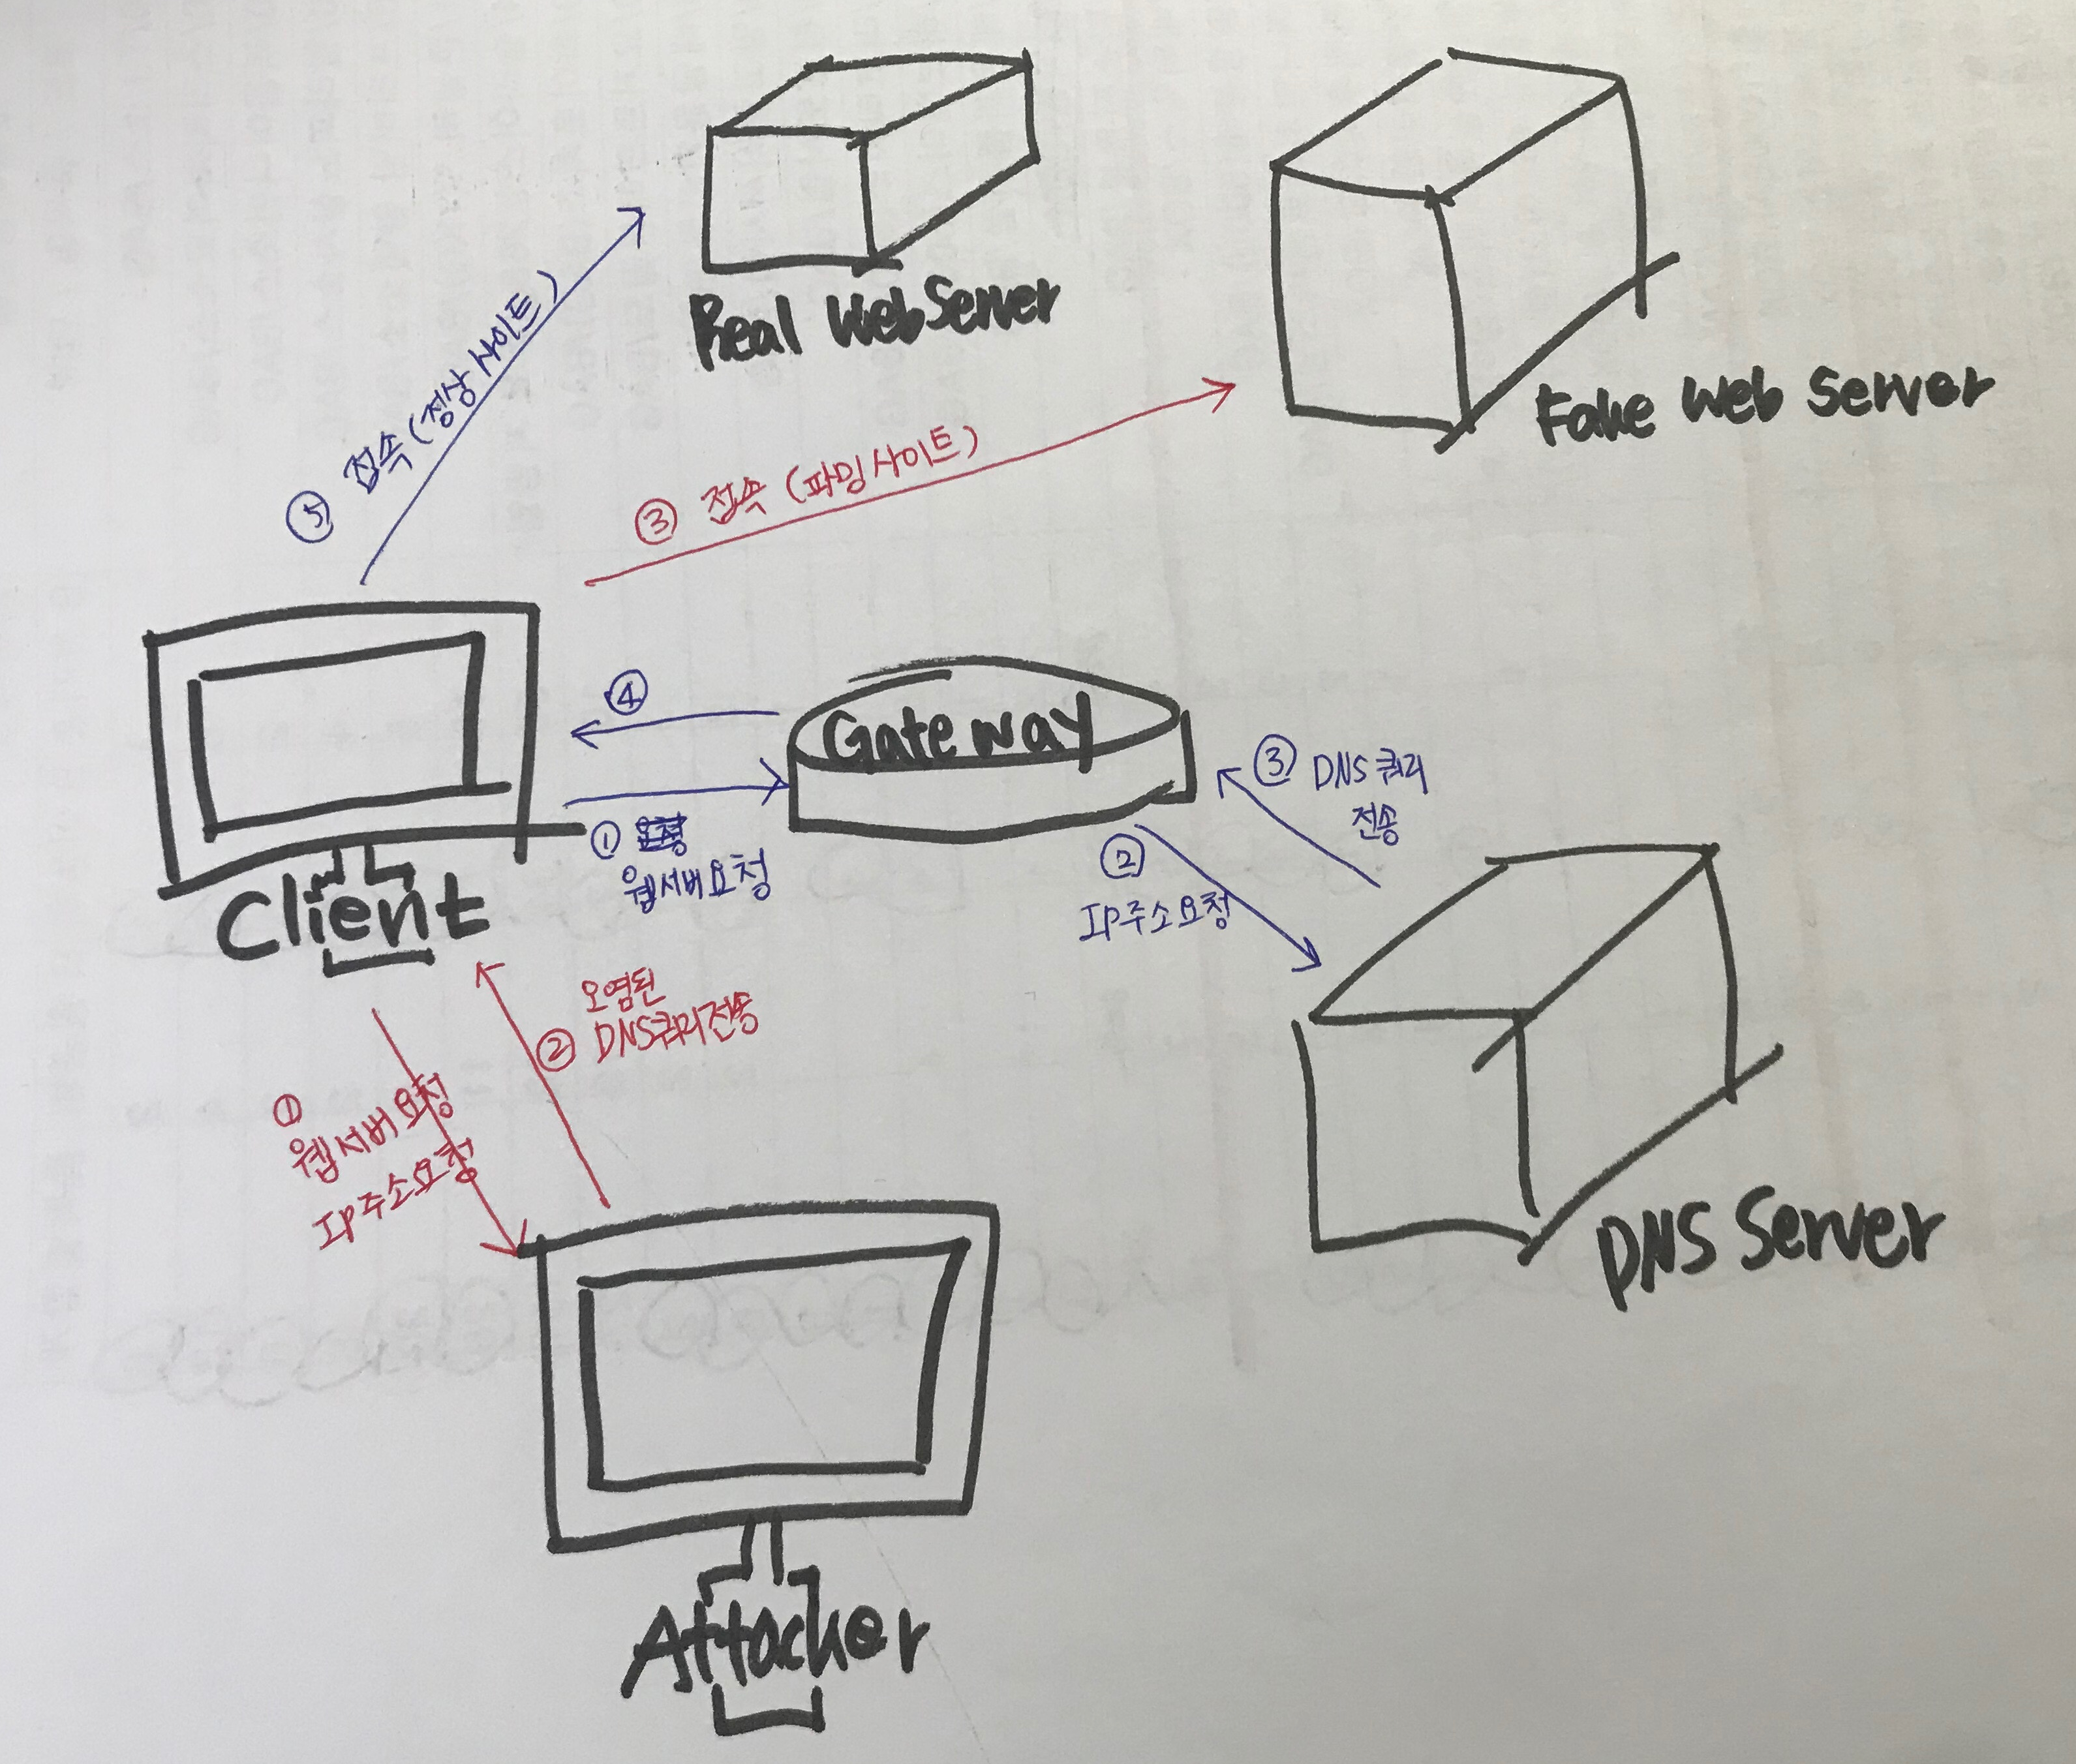 Real WebServer
Fake Web Server
⑤ 접속 (정상사이트)
③ 접속 (파밍사이트)
④
Gateway
① 
웹서버요청
③ DNS쿼리
전송
②
IP주소요청
Client
오염된
② DNS쿼리전송
①
웹서버요청
IP주소요청
DNS Server
Attacker